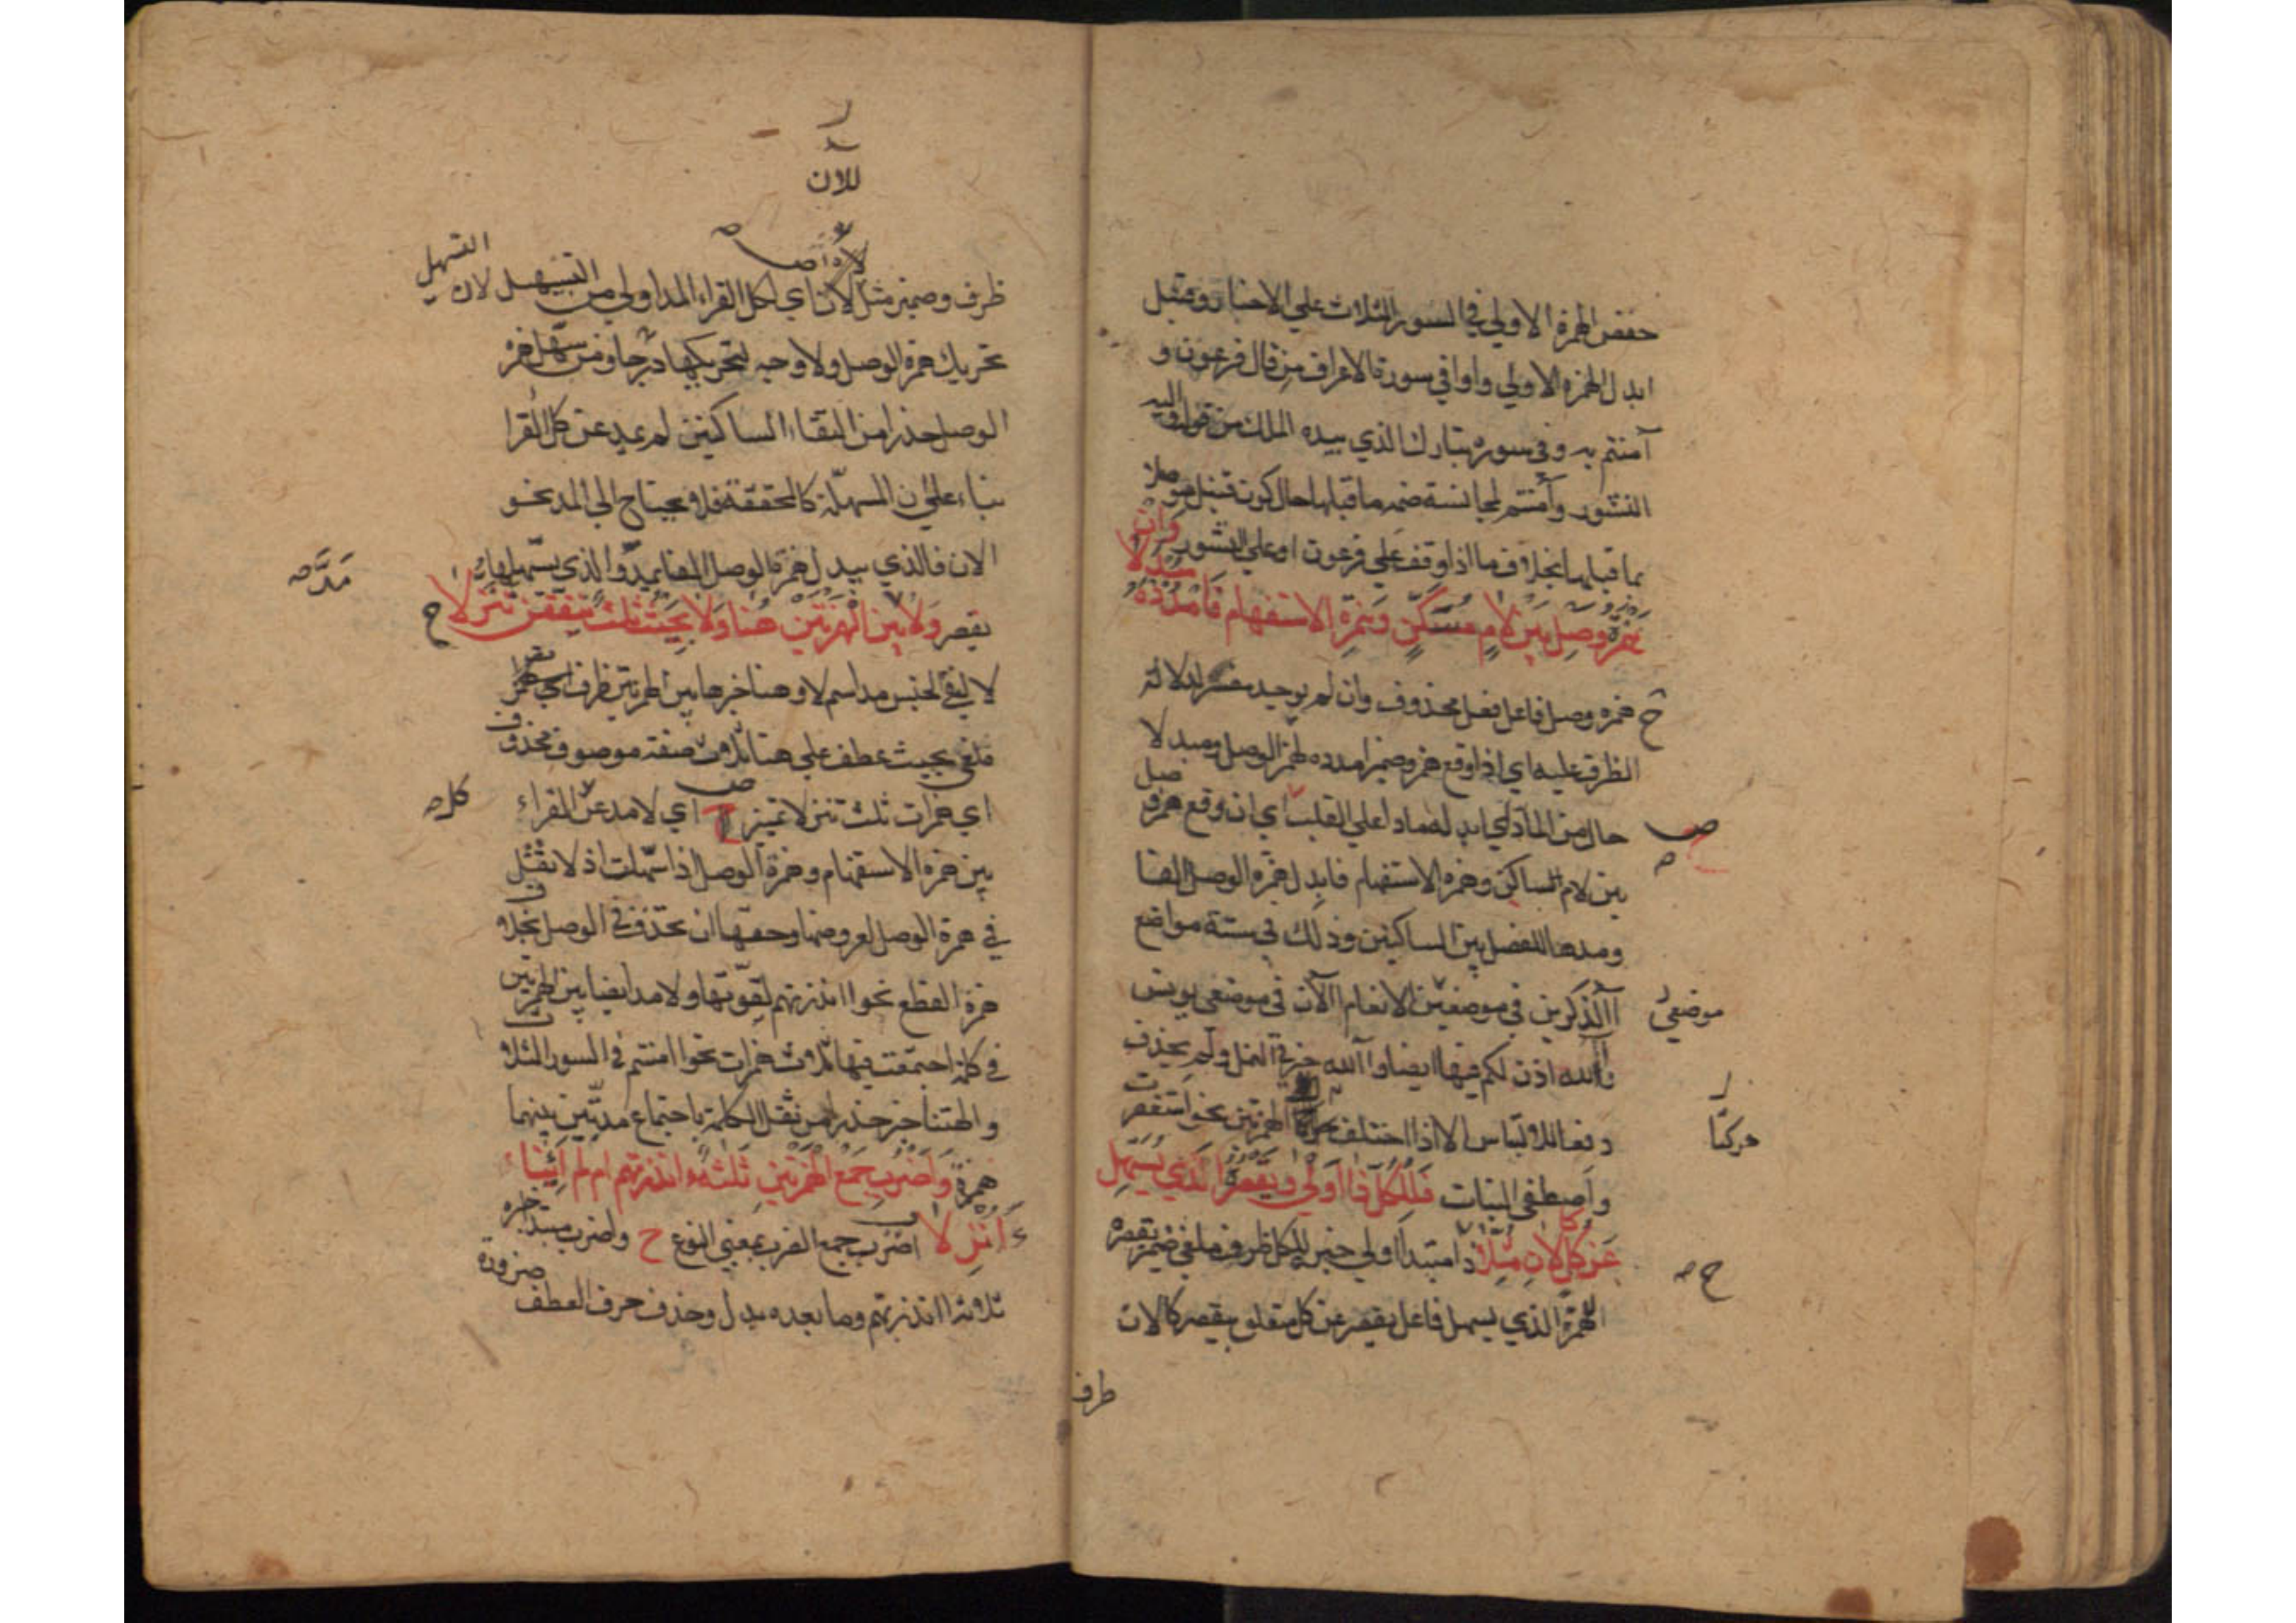 حفص الهمزة الاولي في السور الثلاث علي الاخبار وقنبل
ابدل الهمزة الاولي واوا في سورة الاعراف من قال فرعون و
آمنتم به وفي سورة تبارك الذي بيده الملك من قوله واليه
النشور وأمنتم لمجانسة ضمه ما قبلها حال كون قنبل موصلا
بما قبلها بخلاف ما اذا وقف علي فرعون او علي النشور وان
همزة وصل بين لام مسكن وهمزة الاستفهام فامدده مبدلا
ح همزة وصل فاعل فعل محذوف وان لم يوجد مفسر لدلالة
الظرف عليه اي اذا وقع همز وضمير امدده لهمز الوصل ومبدلا
حال من الماد اي ابدله مادا علي القلب اي ان وقع همزة وصل
بين لام الساكن وهمزة الاستفهام فابدل همزة الوصل الفا
ومدها للفصل بين الساكنين وذلك في ستة مواضع
آالذكرين في موضعين الانعام االآن في موضعي يونس
موضعي
وآالله اذن لكم فيها ايضا وآالله خير في النمل ولم يحذف
دفعا للالتباس الا اذا اختلف حركتا الهمزتين نحو استغفرت
حركتا
واصطفي البنات فللكل ذا اولي ويقصره الذي يسهل
عن كل كالان مثلا ذا مبتدا اولي خبر للكل ظرف ملغي ضمير يقصره
الهمزة الذي يسهل فاعل يقصر عن كل متعلق بيقصر كالان
ظرف
للان
ظرف وضمير مثل لالان اي لكل القراء المد اولي من التسهيل لان
التسهيل
تحريك همزة الوصل ولا وجه لتحريكها درجا ومن سهل همزة
الوصل حذرا من التقاء الساكنين لم يمد عن كل القرا
بناء علي ان المسهلة كالمحققة فلا يحتاج الي المد نحو
الان فالذي يبدل همزة الوصل الفا يمد والذي يسهلها
مده
يقصر ولا مد بين الهمزتين هنا ولا بحيث ثلاث يتفقن تنزلا ح
لا لنفي الجنس مد اسم لا وهنا خبرها بين الهمزتين ظرف
ملغي بحيث عطف علي هنا ثلاث صفة موصوف محذوف
اي همزات ثلث تنزلا تمييز اي لا مد عن القراء
كله
بين همزة الاستفهام وهمزة الوصل اذا سهلت اذ لا يثقل
في همزة الوصل لعروضها وحقها ان تحذف في الوصل بخلاف
همزة القطع نحو اانذرتهم لقوتها ولا مد ايضا بين الهمزتين
في كلمة اجتمعت فيها ثلاث همزات نحو اامنتم في السور الثلاث
والهتنا خير حذرا من ثقل الكلمة باجتماع مدتين بينهما
همزة واضرب جمع الهمزتين ثلثة ءانذرتهم ام لم ائنا
ءانزلا اضرب جمع الضرب بمعني النوع ح واضرب مبتدا خبره
ثلاثة اانذرتهم وما بعده بدل وحذف حرف العطف ضرورة